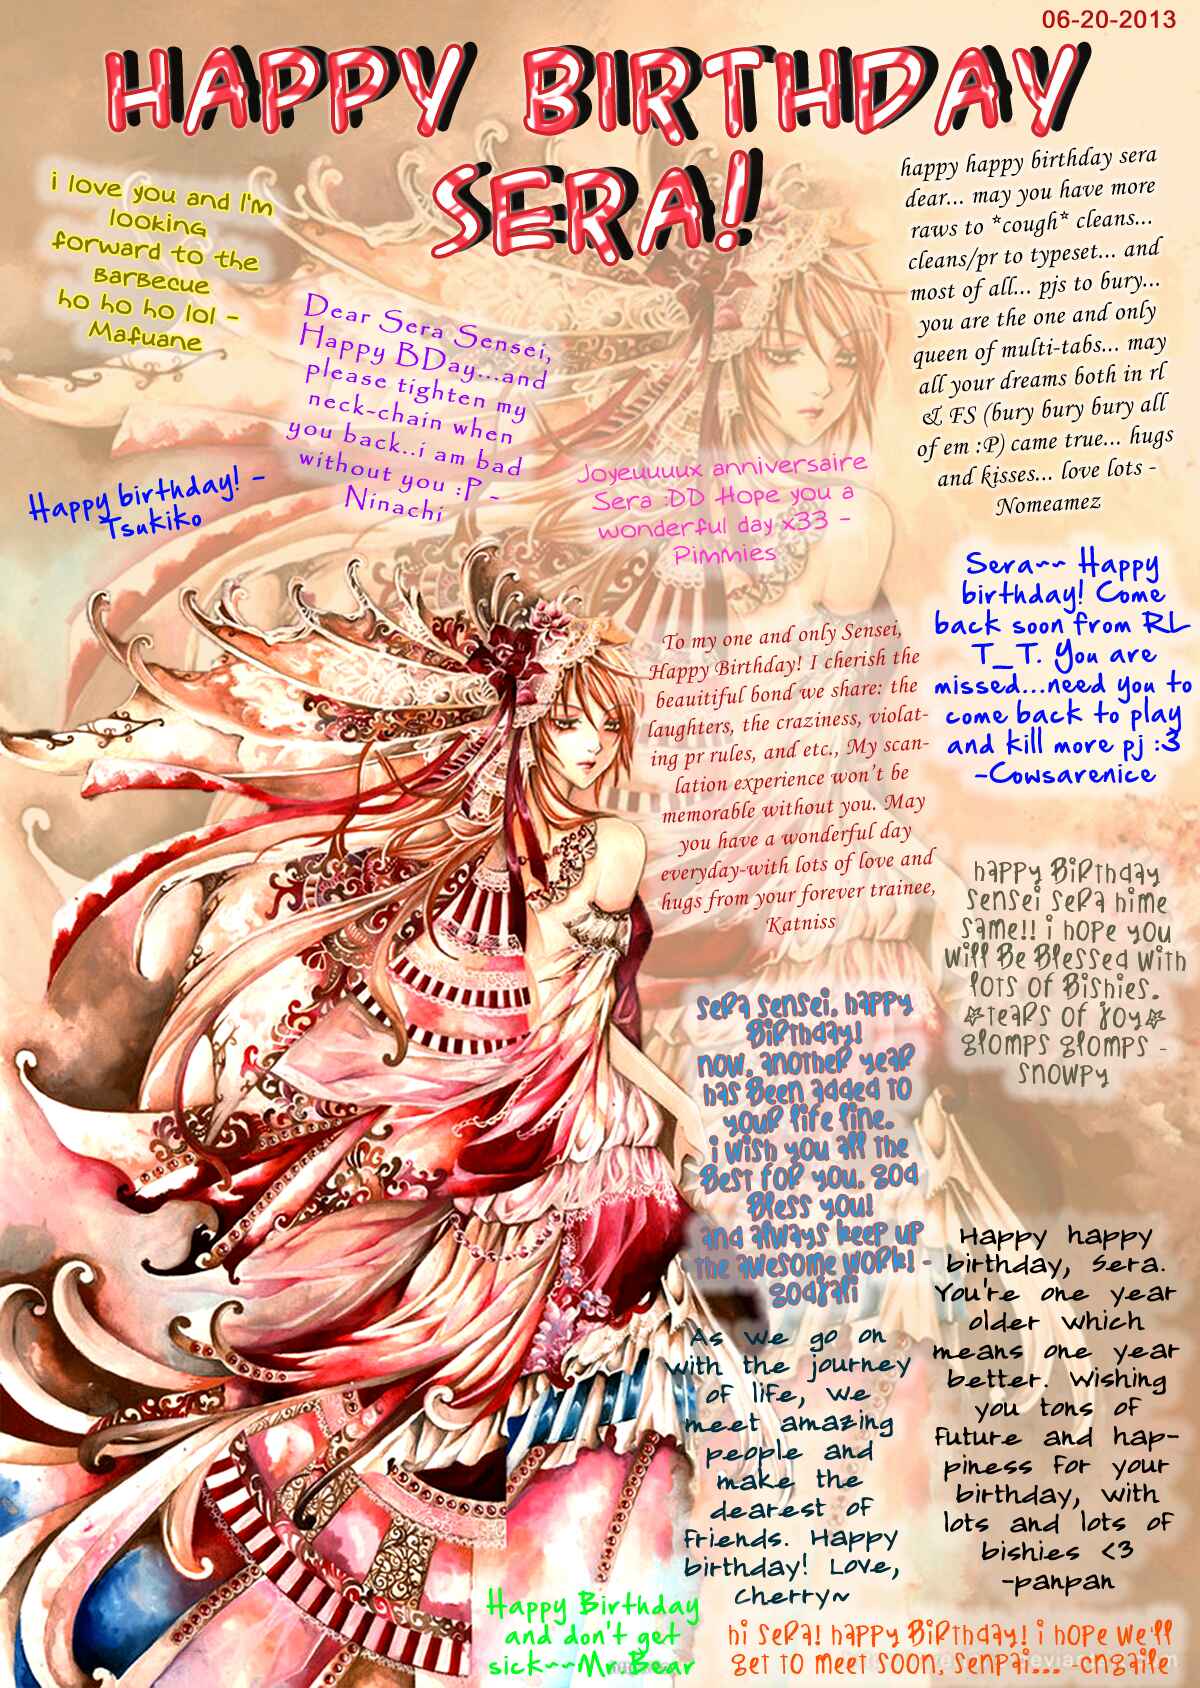 06-20-2013
HAPPY BIRTHDAY
SERA!
i love you and I'm
looking
forward to the
Barbecue
ho ho ho lol -
Mafuane
Dear Sera Sensei,
Happy BDay...and
please tighten my
neck-chain when
you back..i am bad
without you :P -
Ninachi
happy happy birthday sera
dear... may you have more
raws to *cough* cleans...
cleans/pr to typeset... and
most of all... pjs to bury...
you are the one and only
queen of multi-tabs... may
all your dreams both in rl
& FS (bury bury bury all
of em :P) came true... hugs
and kisses... love lots -
Nomeamez
Happy birthday! -
Tsukiko
Joyeuuuux anniversaire
Sera :DD Hope you a
wonderful day x33 -
Pimmies
Sera~~ Happy
birthday! Come
back soon from RL
T_T. You are
missed...need you to
come back to play
and kill more pj :3
-Cowsarenice
To my one and only Sensei,
Happy Birthday! I cherish the
beautiful bond we share: the
laughters, the craziness, violat-
ing pr rules, and etc., My scan-
lation experience won't be
memorable without you. May
you have a wonderful day
everyday-with lots of love and
hugs from your forever trainee,
Katniss
happy Birthday
sensei sera hime
same!! i hope you
will be blessed with
lots of bishies.
*tears of joy*
glomps glomps -
snowpy
sera sensei, happy
Birthday!
now, another year
has been added to
your life line.
i wish you all the
best for you. god
bless you!
and always keep up
the awesome work! -
godjali
Happy happy
birthday, Sera.
You're one year
older which
means one year
better. Wishing
you tons of
future and hap-
piness for your
birthday, with
lots and lots of
bishies <3
-panpan
As we go on
with the journey
of life, we
meet amazing
people and
make the
dearest of
friends. Happy
birthday! Love,
Cherry~
Happy Birthday
and don't get
sick~~Mr.Bear
hi sera! happy Birthday! i hope we'll
get to meet soon, senpai... -cngaile